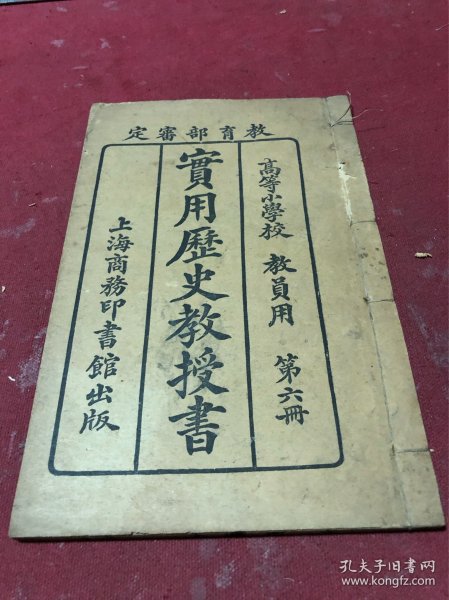 教育部審定
高等小學校 教員用 第六冊
實用歷史教授書
上海商務印書館出版
孔夫子旧书网
www.kongfz.com